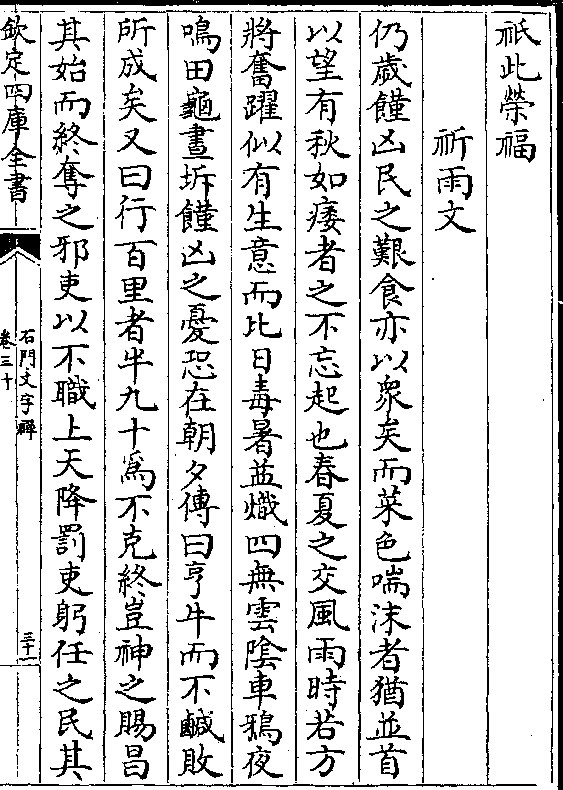 祇此榮福
祈雨文
仍歲饉凶民之艱食亦以衆矣而菜色喘沫者猶並首
以望有秋如痿者之不忘起也春夏之交風雨時若方
將奮躍似有生意而比日毒暑益熾四無雲陰車鴉夜
鳴田龜晝坼饉凶之憂恐在朝夕傳曰亨牛而不鹹敗
所成矣又曰行百里者半九十爲不克終豈神之賜昌
其始而終奪之邪吏以不職上天降罰吏躬任之民其
欽定四庫全書
石門文字禪
卷三十
三十一